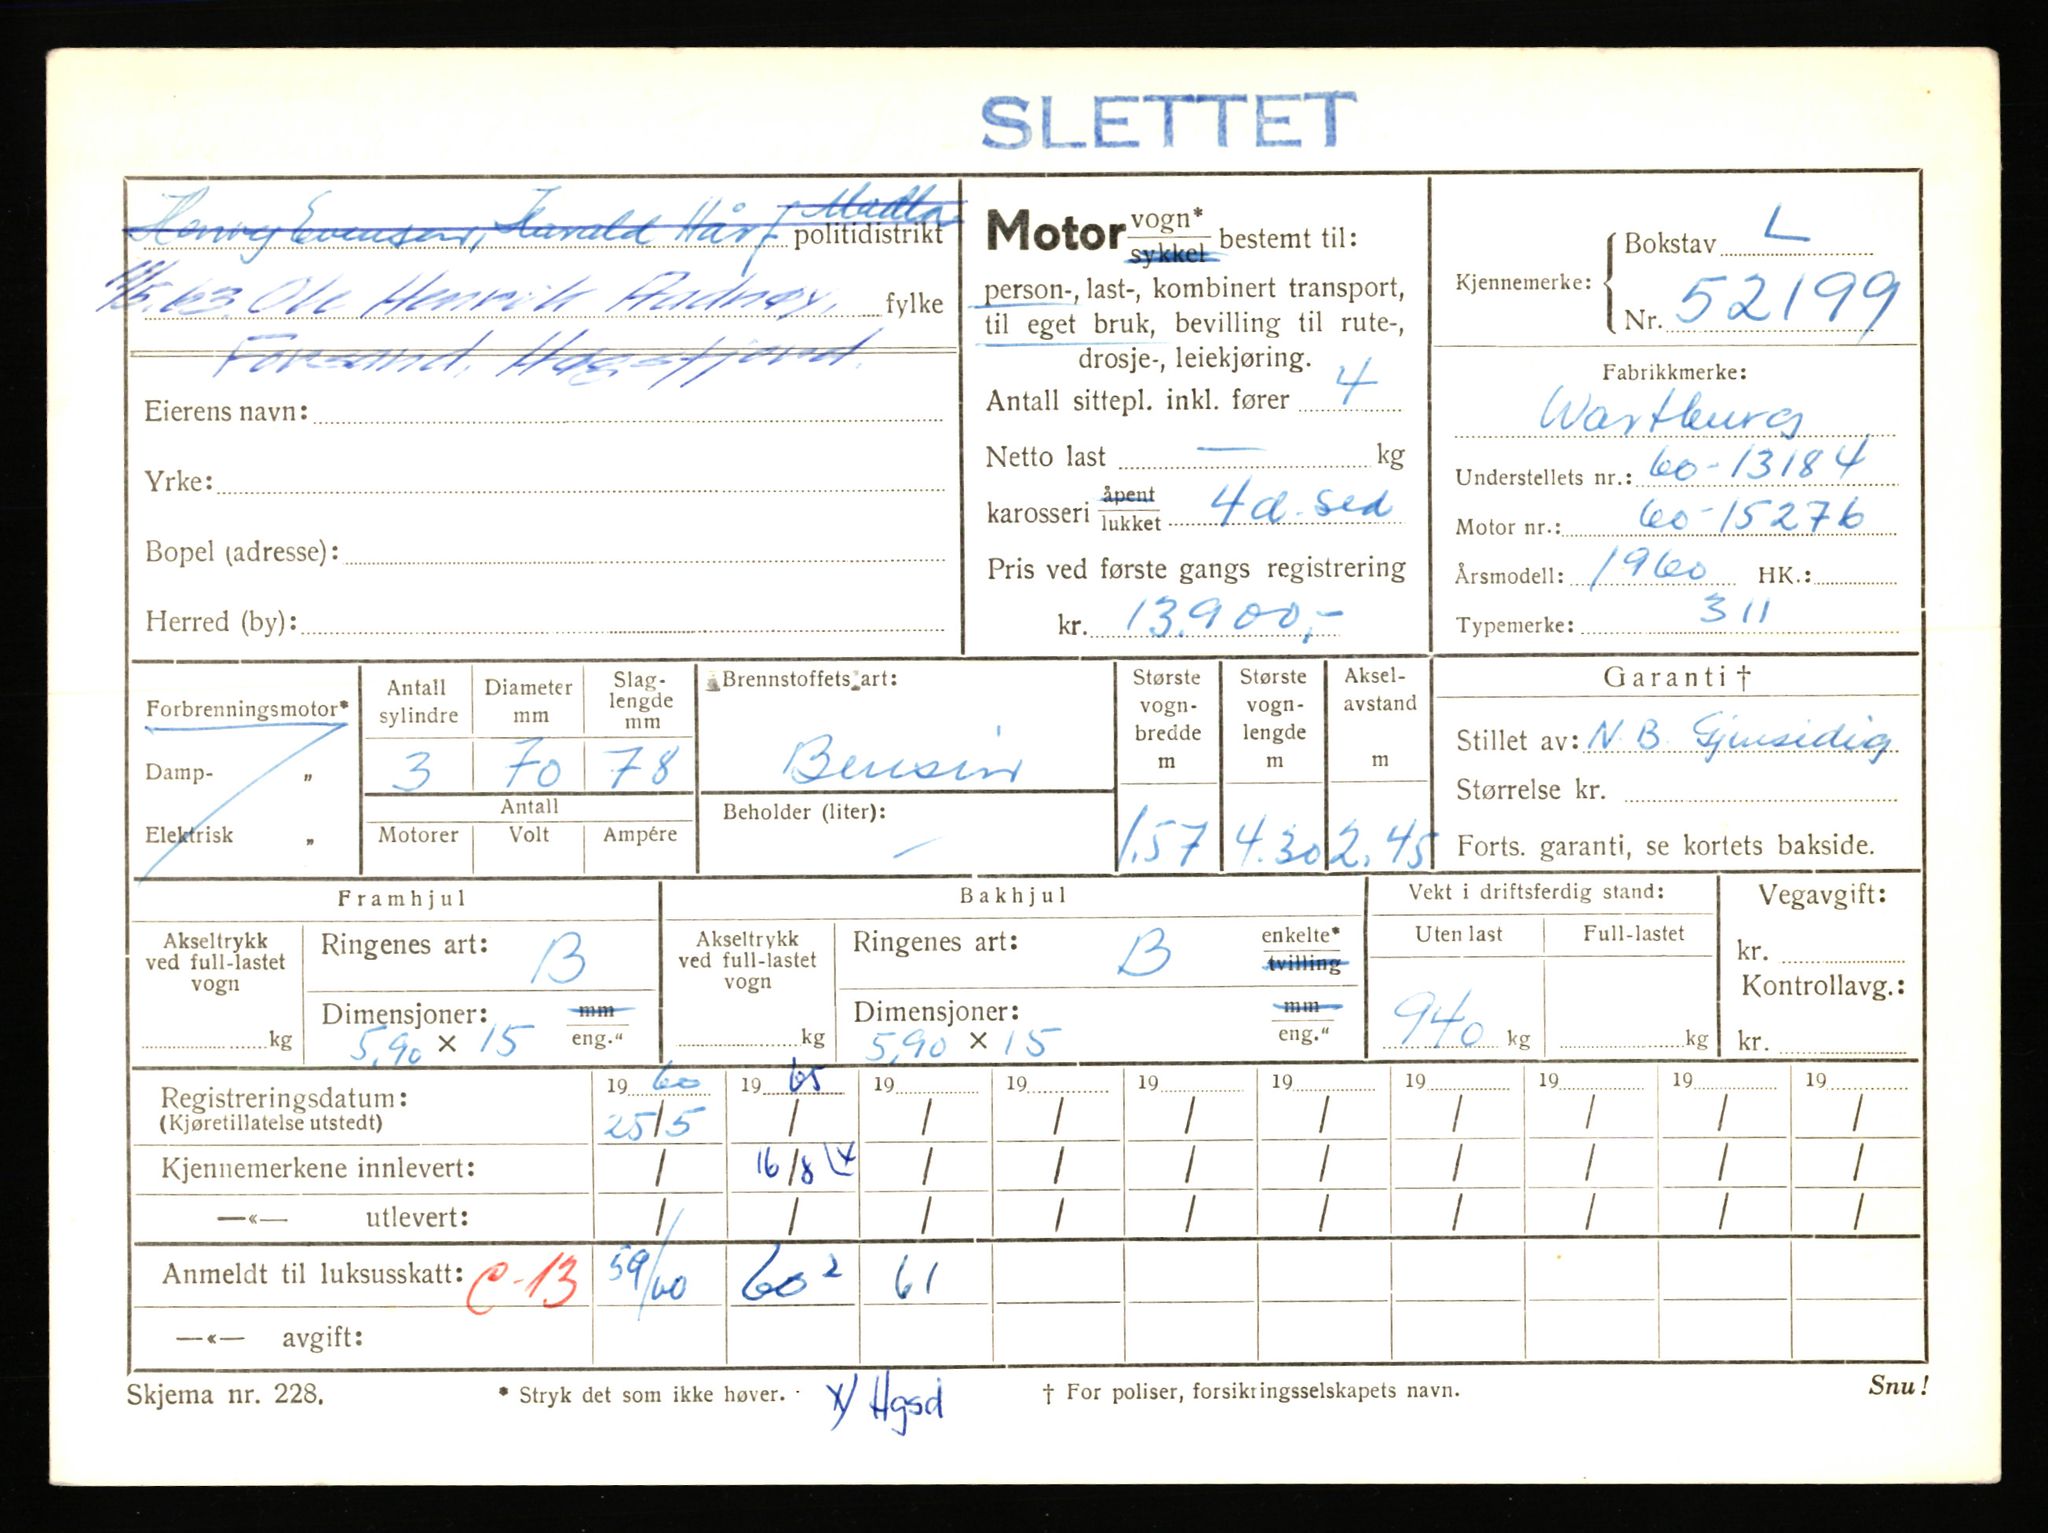 SLETTET
Henry Evensen, Harald Hårf Madla
politidistrikt
.5.63. Ole Henrik Audnøy,
fylke
Forsand, Høgsfjord.
Eierens navn:
Yrke:
Bopel (adresse):
Herred (by):
Motor vogn* sykkel bestemt til:
person-, last-, kombinert transport,
til eget bruk, bevilling til rute-,
drosje-, leiekjøring.
Antall sittepl. inkl. fører 4
Netto last — kg
karosseri åpent lukket 4 d. sed
Pris ved første gangs registrering
kr. 13.900,-
Kjennemerke: Bokstav L
Nr. 52199
Fabrikkmerke:
Wartburg
Understellets nr.: 60-13184
Motor nr.: 60-15276
Årsmodell: 1960 HK.:
Typemerke: 311
Forbrenningsmotor*
Damp- „
Elektrisk „
Antall sylindre
Diameter mm
Slag-lengde mm
3 70 78
Antall
Motorer Volt Ampére
Brennstoffets art:
Bensin
Beholder (liter):
—
Største vogn-bredde m
1.57
Største vogn-lengde m
4.30
Aksel-avstand m
2.45
Garanti †
Stillet av: N.B. Gjensidig
Størrelse kr.
Forts. garanti, se kortets bakside.
Framhjul
Akseltrykk ved full-lastet vogn
kg
Ringenes art: B
Dimensjoner: mm
5,90 × 15 eng."
Bakhjul
Akseltrykk ved full-lastet vogn
kg
Ringenes art: B enkelte* tvilling
Dimensjoner: mm
5,90 × 15 eng."
Vekt i driftsferdig stand:
Uten last Full-lastet
940 kg kg
Vegavgift:
kr.
Kontrollavg.:
kr.
19 60 19 65 19 19 19 19 19 19 19 19
Registreringsdatum: 25/5 / / / / / / / / /
(Kjøretillatelse utstedt)
Kjennemerkene innlevert: / 16/8 x / / / / / / / /
—«— utlevert: / / / / / / / / / /
Anmeldt til luksusskatt: C-13 59/60 60² 61
—«— avgift:
Skjema nr. 228.
* Stryk det som ikke høver.
x/ Hgsd
† For poliser, forsikringsselskapets navn.
Snu!